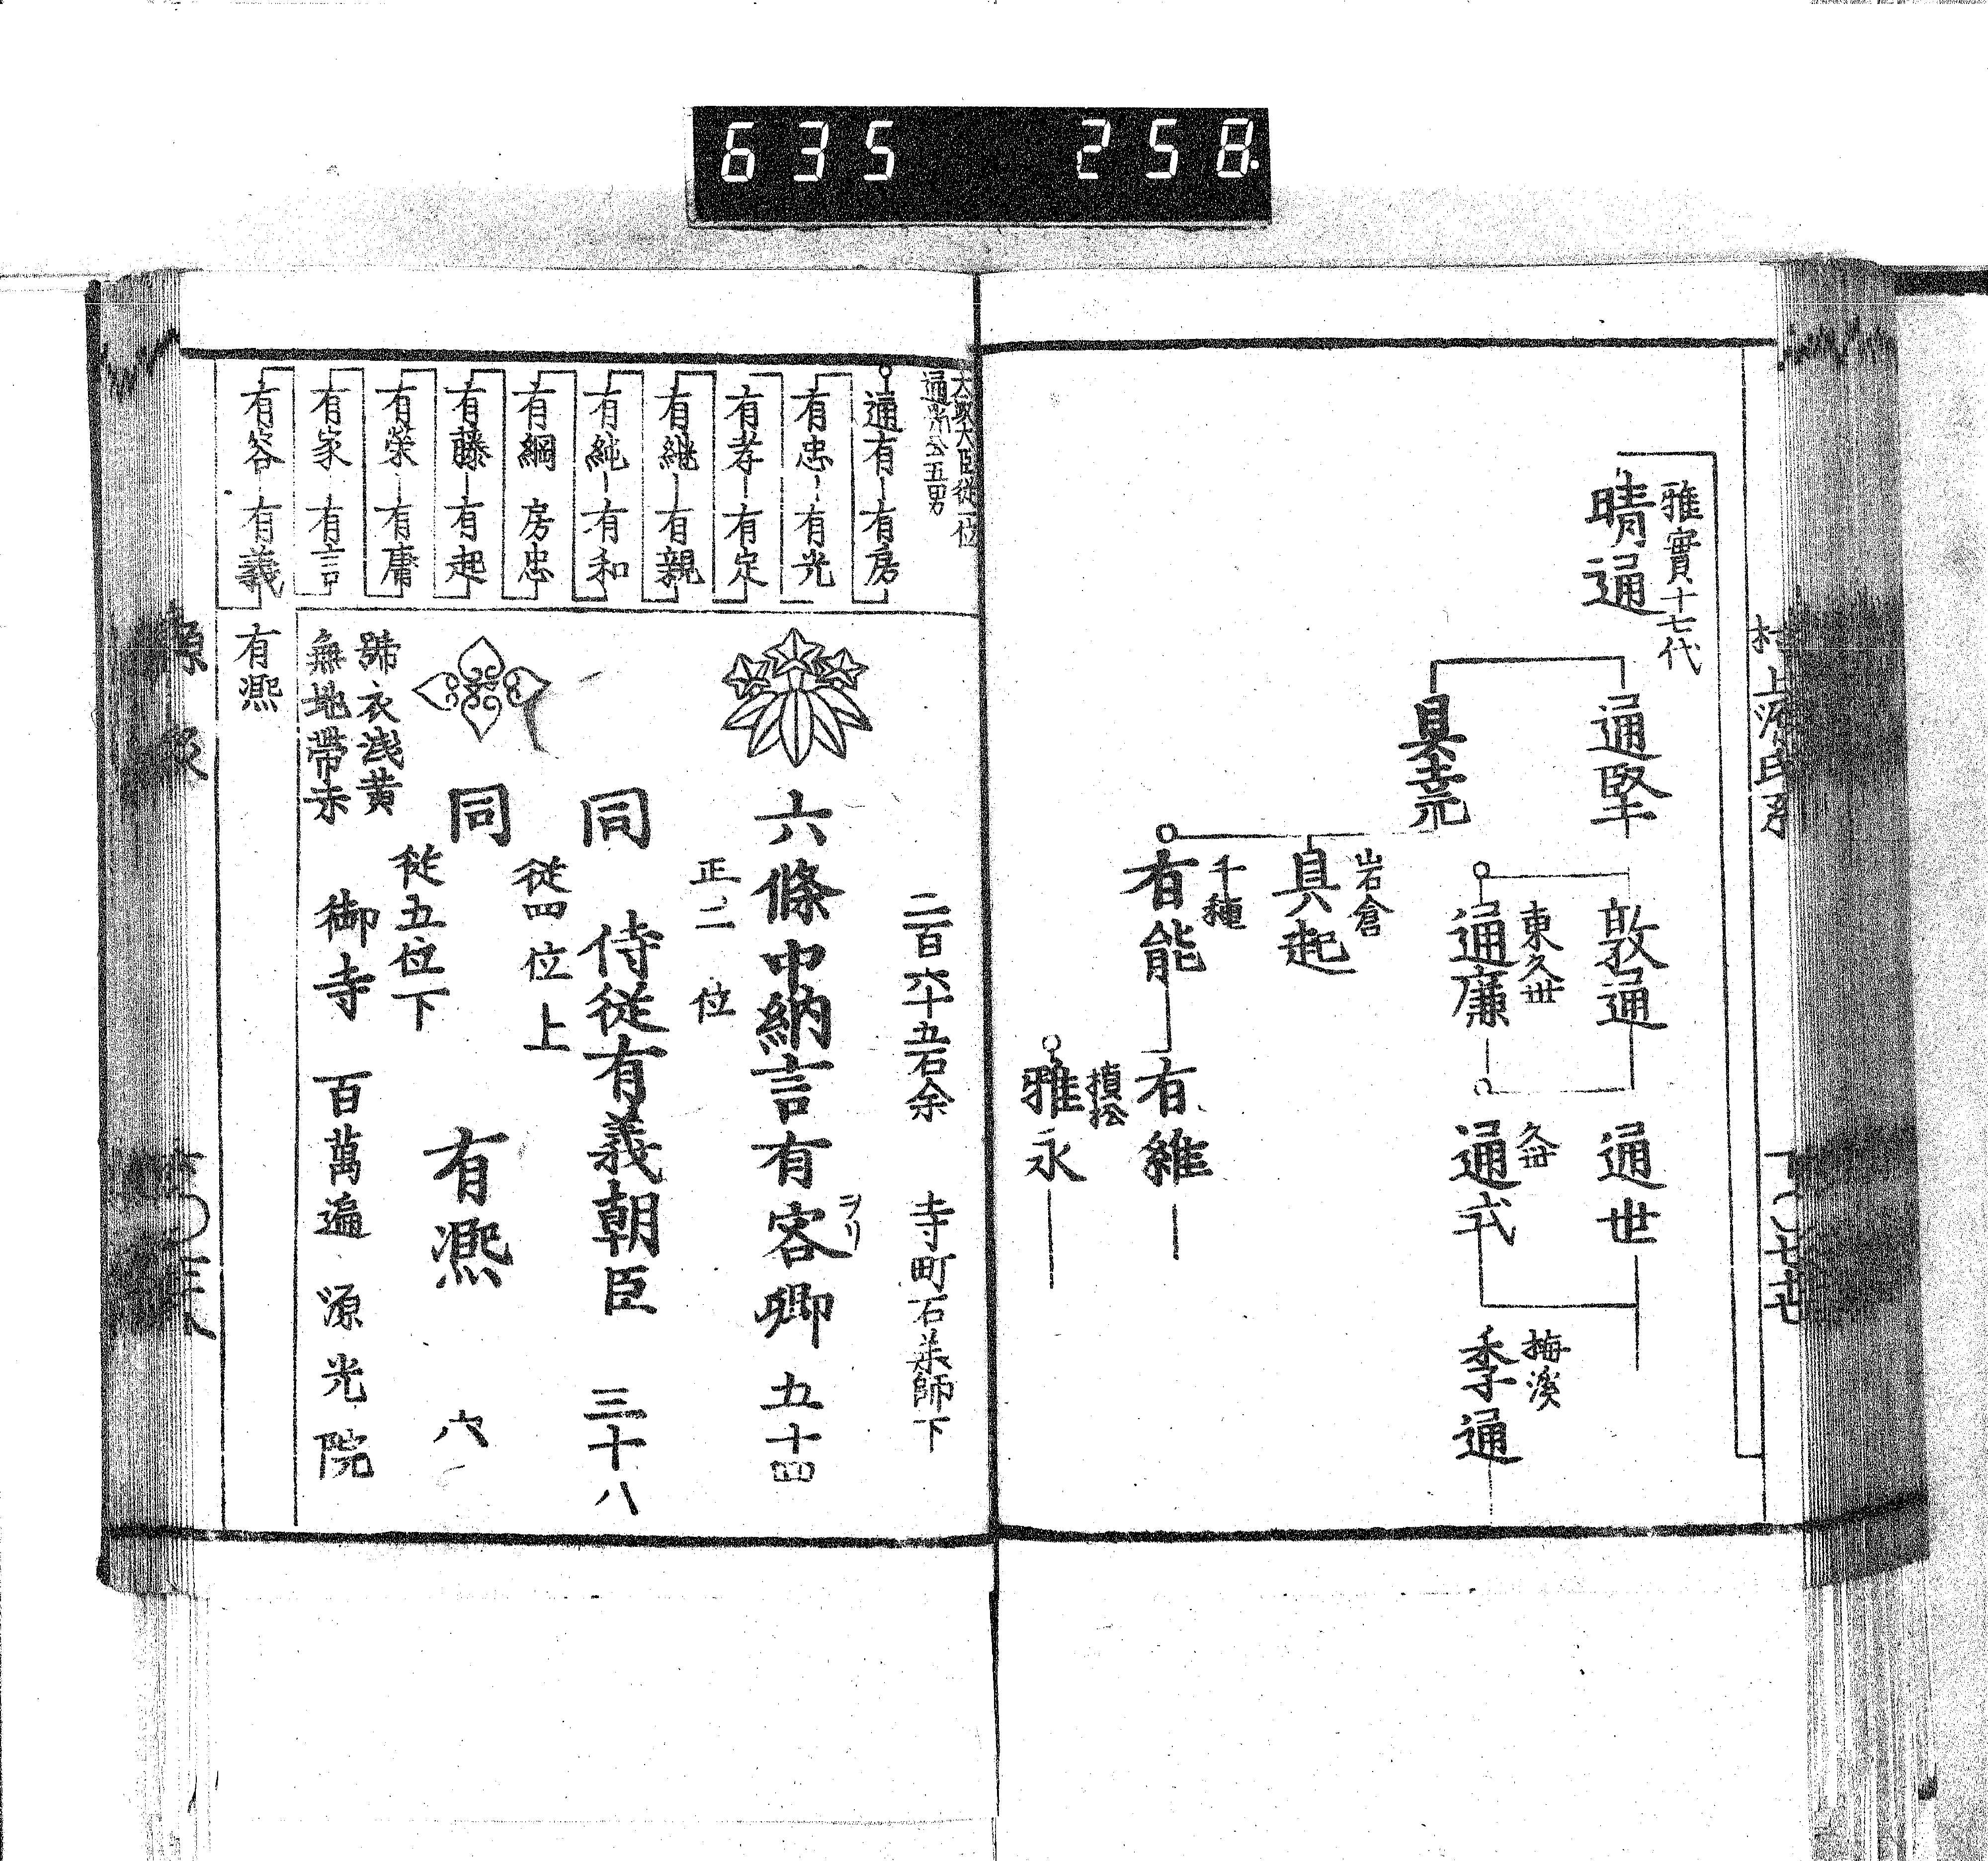 635 258.
村上源氏系
雅實十七代
晴通
通堅
具堯
敦通
東久世
通廉
岩倉
具起
千種
有能
通世
久世
通式
有維
植松
雅永
梅溪
季通
太政大臣從一位
通光公五男
通有 有房
有忠 有光
有孝 有定
有継 有親
有純 有和
有綱 房忠
有藤 有起
有榮 有庸
有家 有言
有容 有義
有凞
二百六十五石余 寺町石薬師下
六條中納言有容卿 五十四
ヲサ
正二位
同 侍従有義朝臣 三十八
従四位上
同 有凞 六
従五位下
號衣浅黄
無地帶赤
御寺 百萬遍 源光院